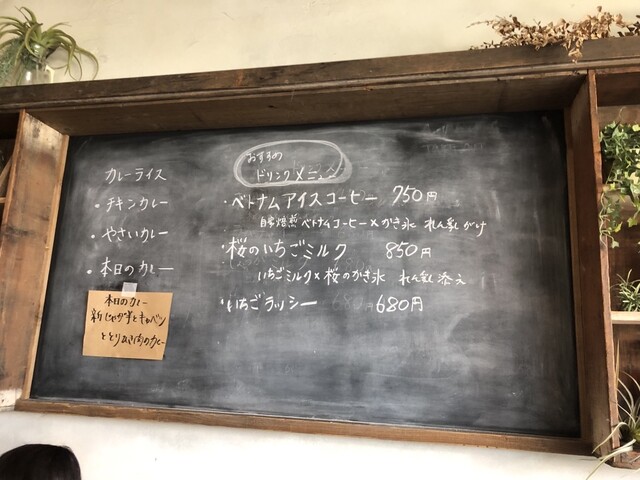 カレーライス
・チキンカレー
・やさいカレー
・本日のカレー
本日のカレー
新じゃがいもとキャベツ
ととりひき肉のカレー
おすすめ
ドリンクメニュー
・ベトナムアイスコーヒー 750円
自家焙煎ベトナムコーヒー×かき氷 れん乳がけ
・桜のいちごミルク 850円
いちごミルク×桜のかき氷 れん乳添え
・いちごラッシー 680円